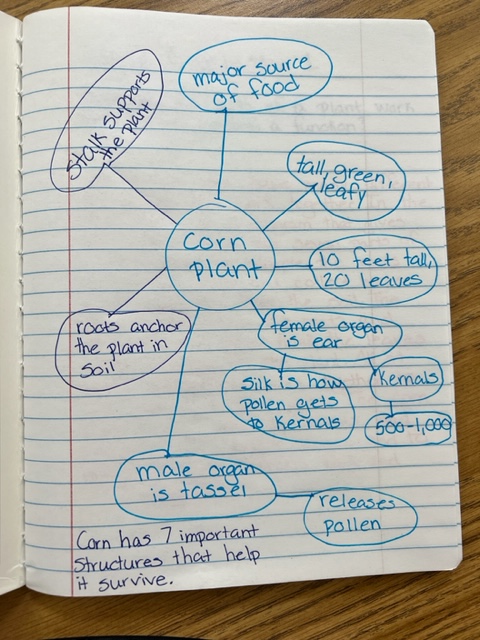 major source
of food
stalk supports
the plant
tall, green,
leafy
corn
plant
10 feet tall,
20 leaves
roots anchor
the plant in
soil
female organ
is ear
silk is how
pollen gets
to kernals
kernals
500-1,000
male organ
is tassel
releases
pollen
Corn has 7 important
structures that help
it survive.